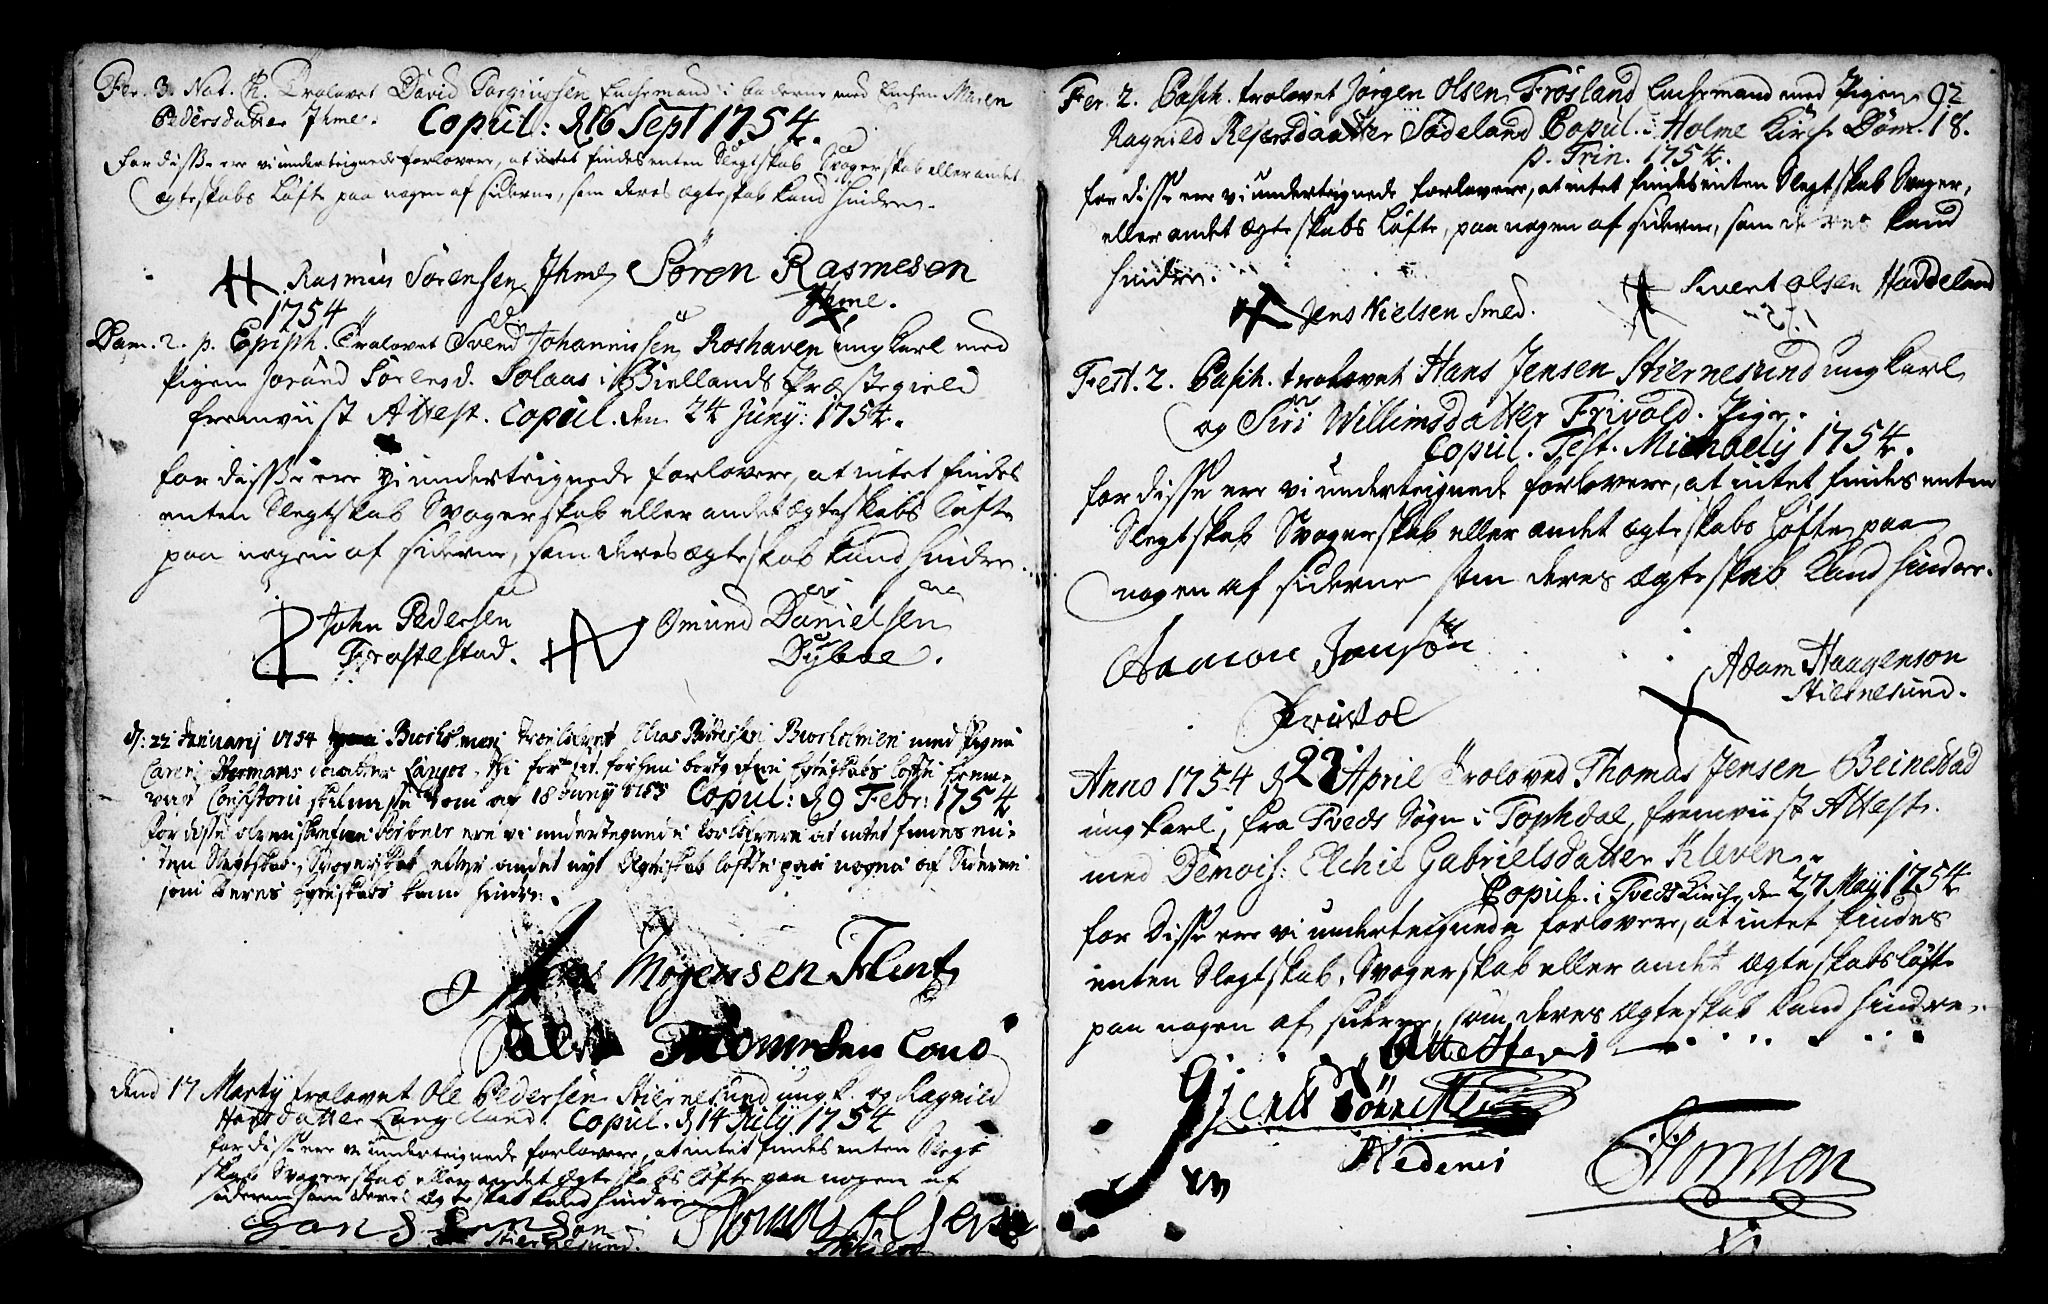 Fer. 3. Nat. Trolovet David Enchemand i med Enchen Maren
Pedersdatter Ihme. Copul: d 16 Sept 1754.
for disse ere vi underteignede forlovere, at intet findes enten Slegtskab Svogerskab eller andet
ægteskabs Løfte paa nogen af siderne, som deres ægteskab kand hindre.
Rasmus Sørensen Ihme Søren Rasmesen
Ihme.
1754
Dom. 2. p. Epiph. Trolovet Svend Johannissen Roshaven ung karl med
Pigen Jorund Sørensd. Solaas i Biellands Præstegield
fremviist Attest. Copul. den 24 Juny: 1754.
for disse ere vi underteignede forlovere, at intet findes
enten Slegtskab Svogerskab eller andet ægteskabs Løfte
paa nogen af siderne, som deres ægteskab kand hindre.
John Pedersen Omund Danielsen
Frostestad. Dyboe.
d: 22 Januarij 1754 trolovet Elias med Pigen
Caren Hermans daatter
18 Junij 1753 Copul: d 9 Febr: 1754
for disse ere vi underteignede forlovere at intet findes en-
ten Slegtskab, Svogerskab eller andet nyt Egteskab løfte paa nogen af Siderne
som deres Egteskab kand hindre.
Mogensen Flint
Tommesen
dend 17 Marty trolovet Ole Pedersen Stiernesund ung k. og Ragnild
datter Langeland. Copul. d 14 July 1754
for disse ere vi underteignede forlovere, at intet findes enten Slegt
skab Svogerskab eller andet ægteskabs Løfte paa nogen af
siderne som deres Ægteskab kand hindre
Hans Jenson
Stiernesund.
Fer. 2. Pasch. trolovet Jørgen Olsen Frøsland Enchemand med Pigen 92
Ragnild Rejersdaatter Sødeland Copul. i Holme Kirche Dom. 18.
p. Trin. 1754.
for disse ere vi underteignede forlovere, at intet findes enten Slegtskab Svoger,
eller andet ægteskabs Løfte, paa nogen af siderne, som deres kand
hindre.
Sivert Olsen Haddeland
Jens Nielsen Smed.
Fest. 2. Pasch. trolovet Hans Jensen Stiernesund ung karl
og Siri Willumsdatter Frivold. Pige.
Copul. Fest. Michaely 1754.
for disse ere vi underteignede forlovere, at intet findes enten
Slegtskab Svogerskab eller andet ægteskabs Løfte paa
nogen af siderne som deres ægteskab kand hindre.
Aanon Jonsøn
Adam Haagenson
Stiernesund.
Anno 1754 d 23 April Troloved Thomas Jensen Beinestad
ung karl, fra Tveds Sogn i Tophdal, fremviist Attest.
med Demois: Elchie Gabrielsdatter Kleven
Copul. i Tveds Kirche den 27 May 1754
for Disse ere vi underteignede forlovere, at intet findes
enten Slegtskab, Svogerskab eller andet ægteskabs løfte
paa nogen af siderne, som deres ægteskab kand hindre.
Nedenes